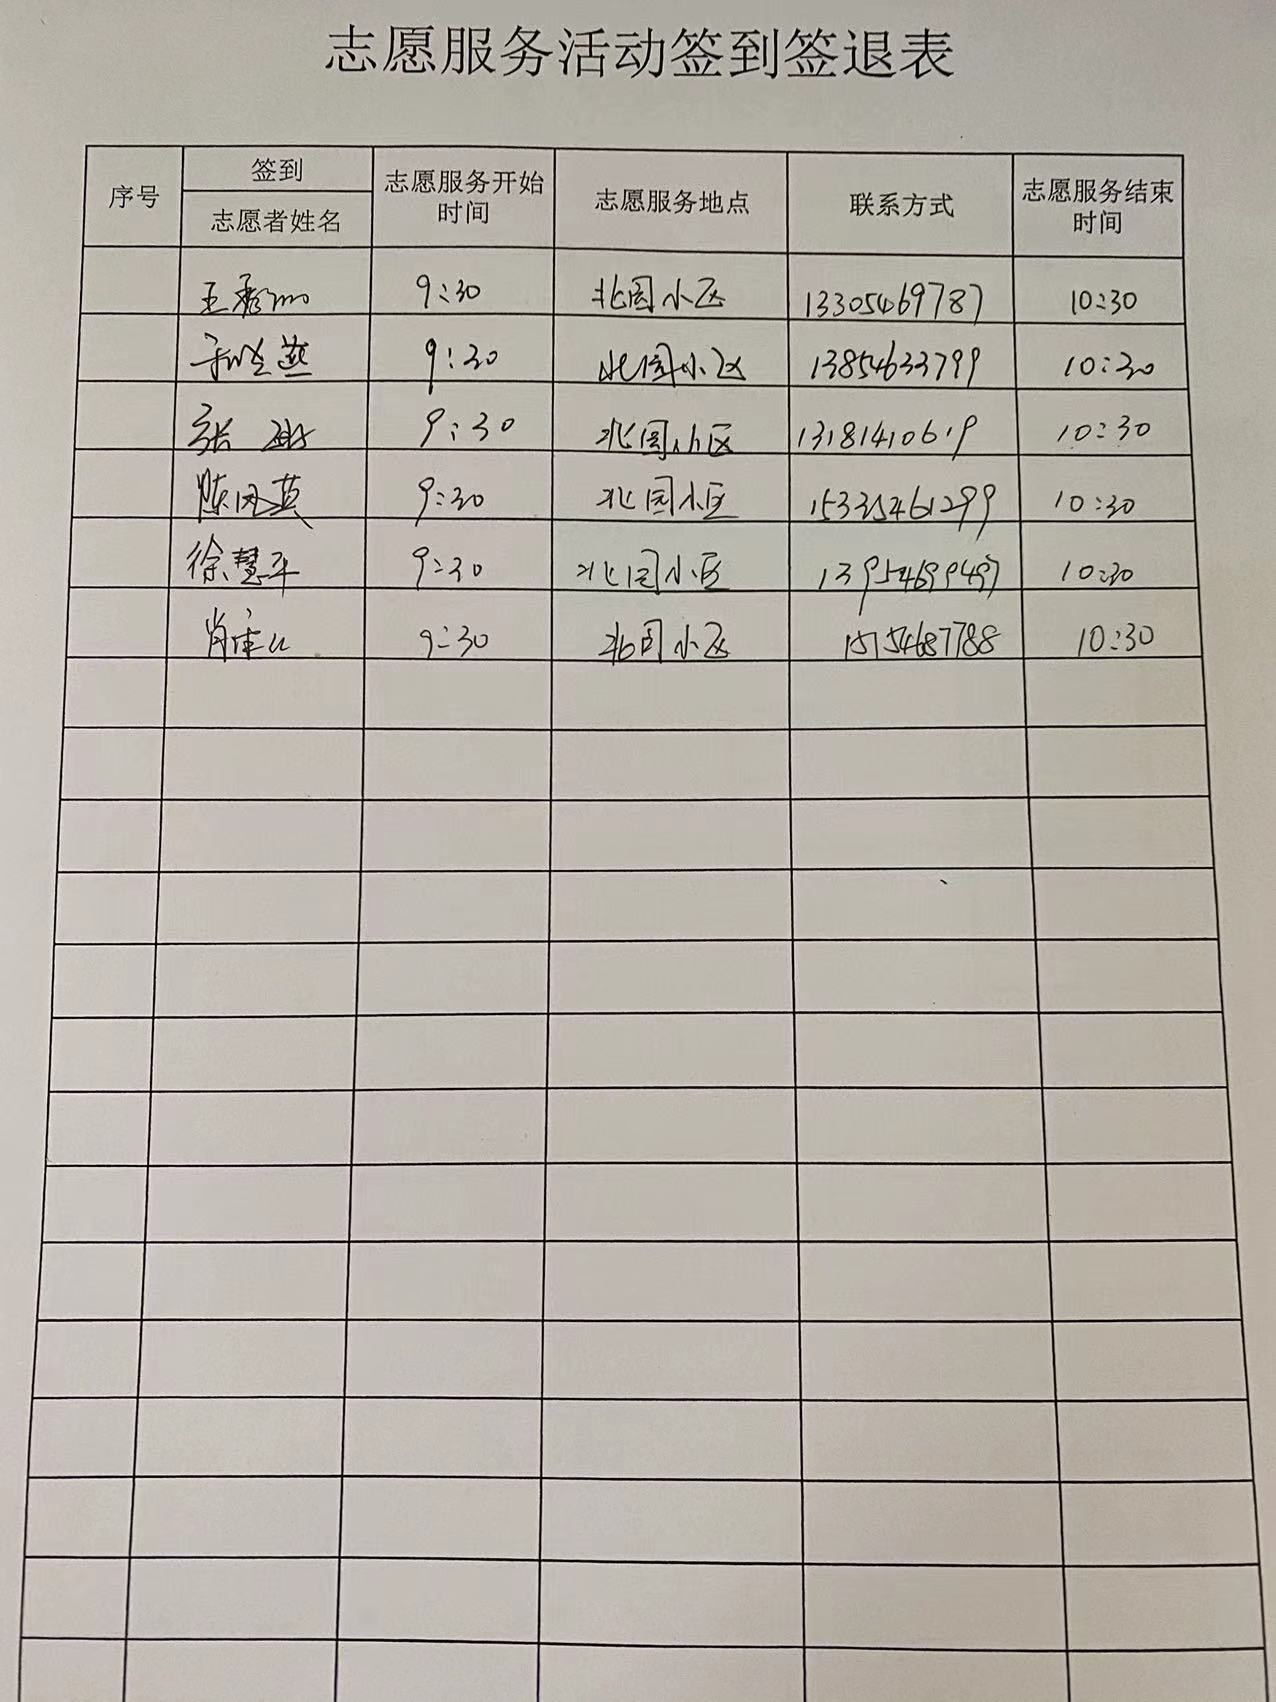 志愿服务活动签到签退表
序号 签到 志愿者姓名 志愿服务开始时间 志愿服务地点 联系方式 志愿服务结束时间
王秀 9:30 北园小区 13305469787 10:30
燕 9:30 北园小区 13854633799 10:30
张 9:30 北园小区 13181410619 10:30
陈凤英 9:30 北园小区 15335461299 10:30
徐慧平 9:30 北园小区 13954699497 10:30
肖 9:30 北园小区 15154687788 10:30